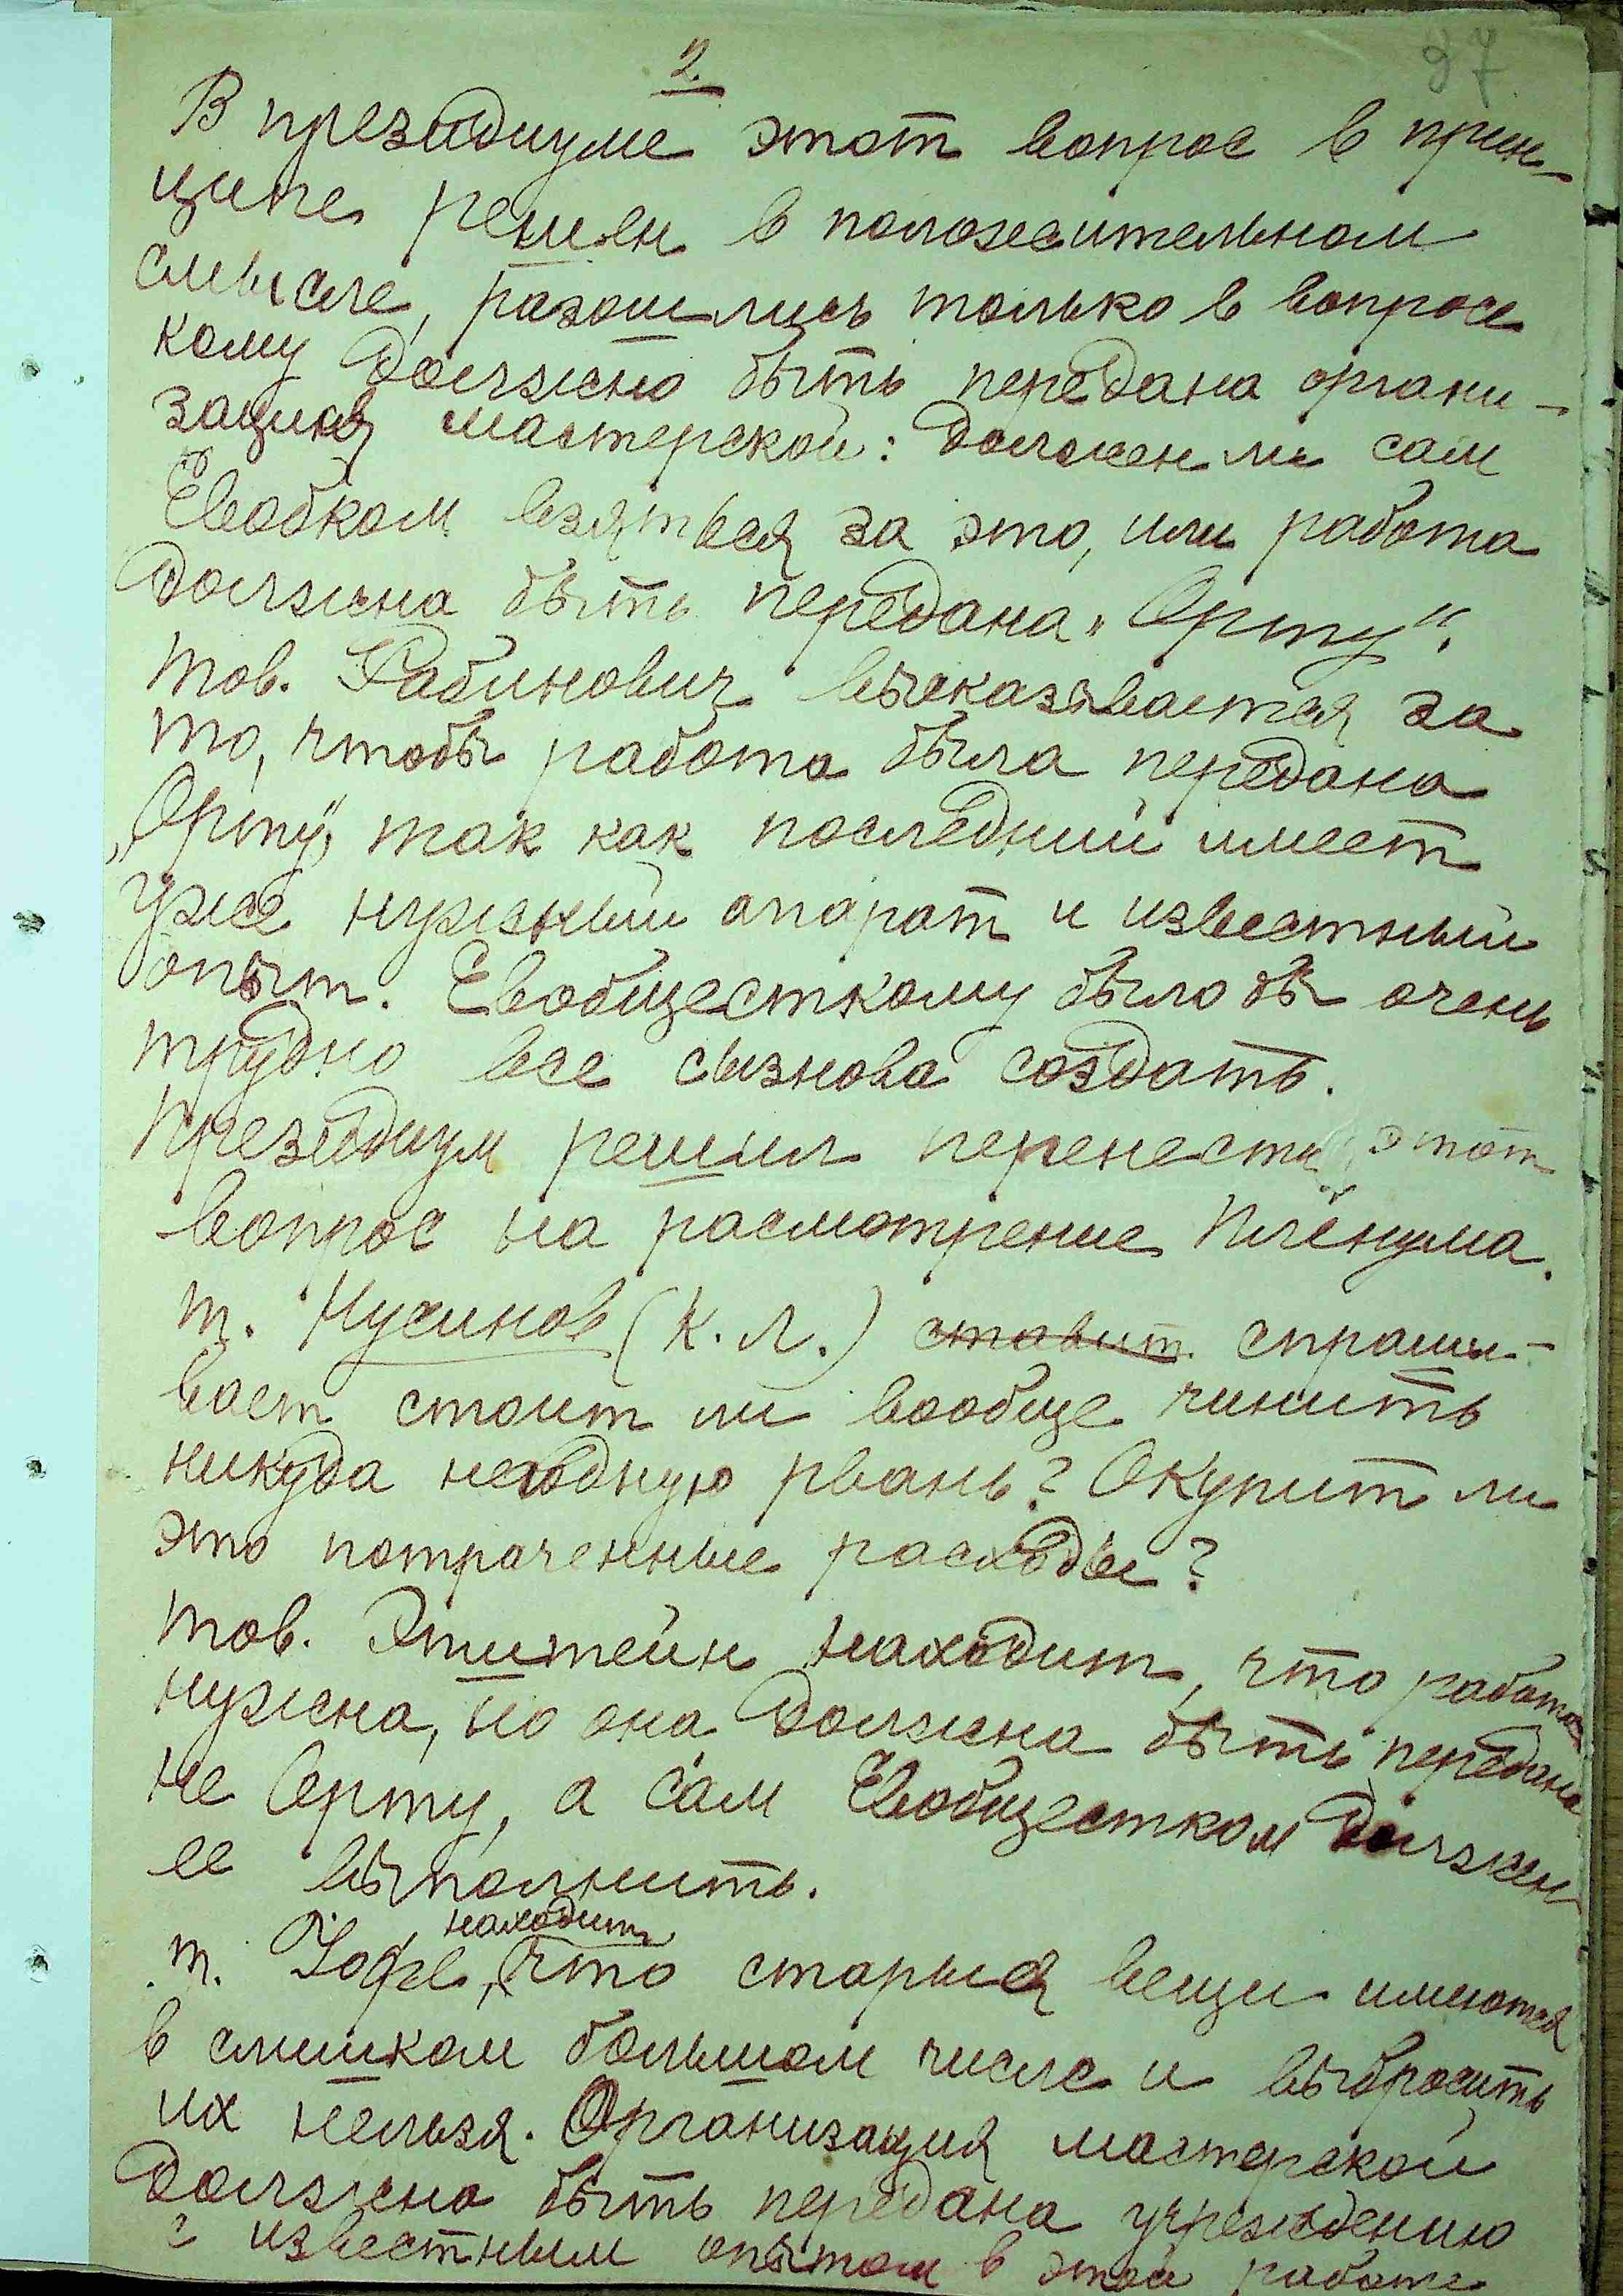 2.
97
В президиуме этот вопрос в прин-
ципе решен в положительном
смысле, разошлись только в вопросе
кому должна быть передана органи-
зация мастерской: должен ли сам
Евобком взяться за это, или работа
должна быть передана „Орту".
Тов. Рабинович высказывается за
то, чтобы работа была передана
„Орту", так как последний имеет
уже нужный апарат и известный
опыт. Евобщесткому было бы очень
трудно все сызнова создать.
Президиум решил перенести этот
вопрос на расмотрение Пленума.
т. Нусинов (К.Л.) ставит спраши-
вает стоит ли вообще чинить
никуда негодную рвань? Окупит ли
это потраченные расходы?
Тов. Этштейн находит, что работа
нужна, но она должна быть передана
не Орту, а сам Евобщестком должен
ее выполнить.
находит
т. Іофе, что старыя вещи имеются
в слишком большом числе и выбросить
их нельзя. Организация мастерской
должна быть передана учреждению
с известным опытом в этой работе